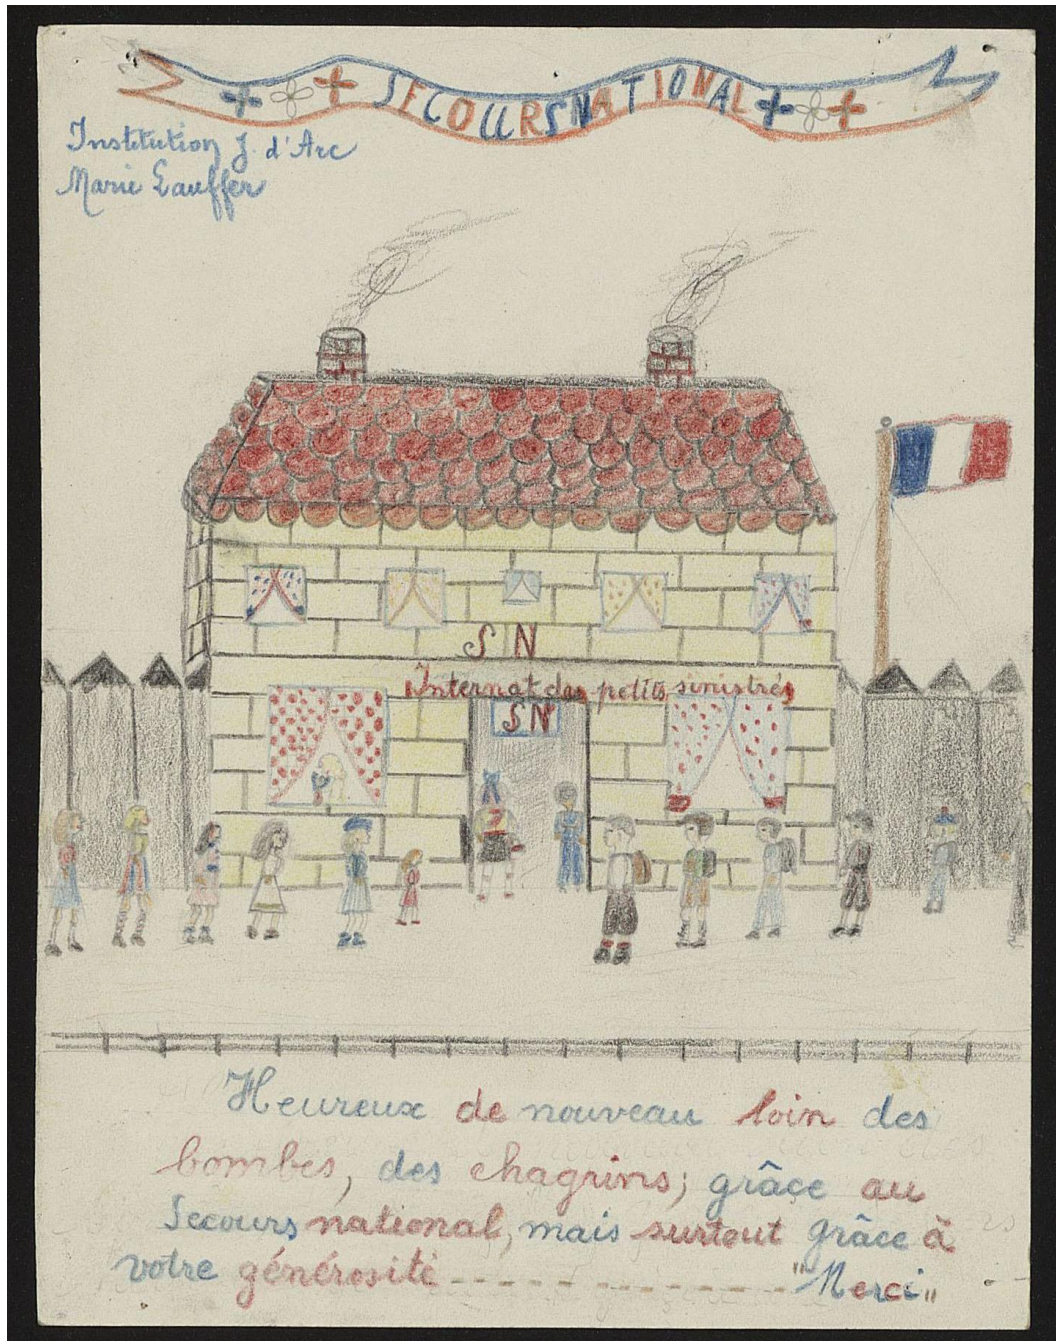 SECOURS NATIONAL
Institution J. d'Arc
Marie Lauffer
S N
Internat des petits sinistrés
SN
Heureux de nouveau loin des
bombes, des chagrins; grâce au
Secours national, mais surtout grâce à
votre générosité - - - - - - - - - - - - "Merci"